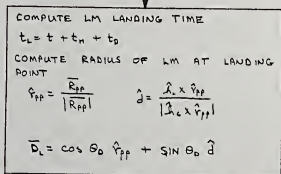 COMPUTE LM LANDING TIME
t_L = t + t_H + t_D
COMPUTE RADIUS OF LM AT LANDING
POINT
r̂_PP = R̄_PP / |R̄_PP|    d̂ = ĥ_c × r̂_PP / |ĥ_c × r̂_PP|
D̄_L = COS θ_D r̂_PP + SIN θ_D d̂